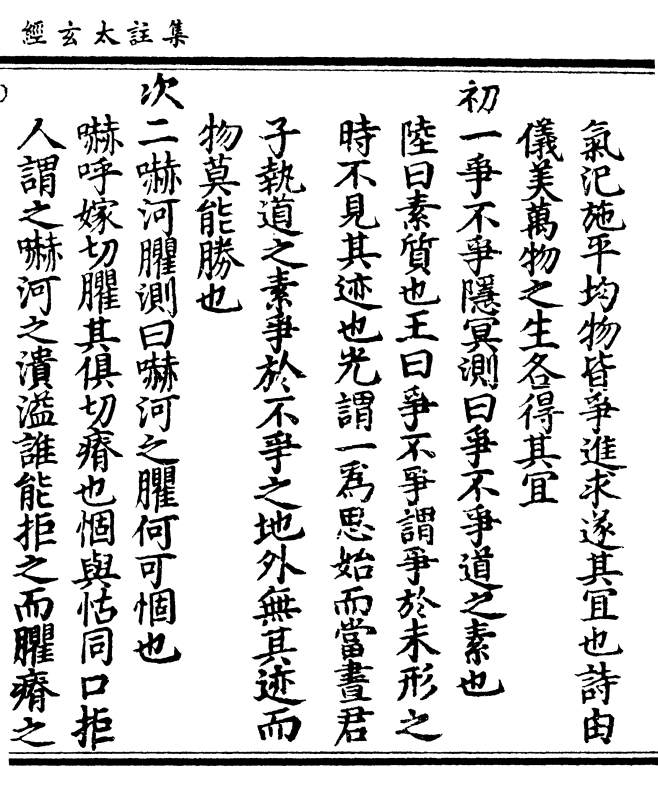 集註太玄經
氣汜施平均物皆爭進求遂其宜也詩由
儀美萬物之生各得其宜
初一爭不爭隱冥測曰爭不爭道之素也
陸曰素質也王曰爭不爭謂爭於未形之
時不見其迹也光謂一爲思始而當晝君
子執道之素爭於不爭之地外無其迹而
物莫能勝也
次二嚇河臞測曰嚇河之臞何可悃也
嚇呼嫁切臞其俱切瘠也悃與怙同口拒
人謂之嚇河之潰溢誰能拒之而臞瘠之